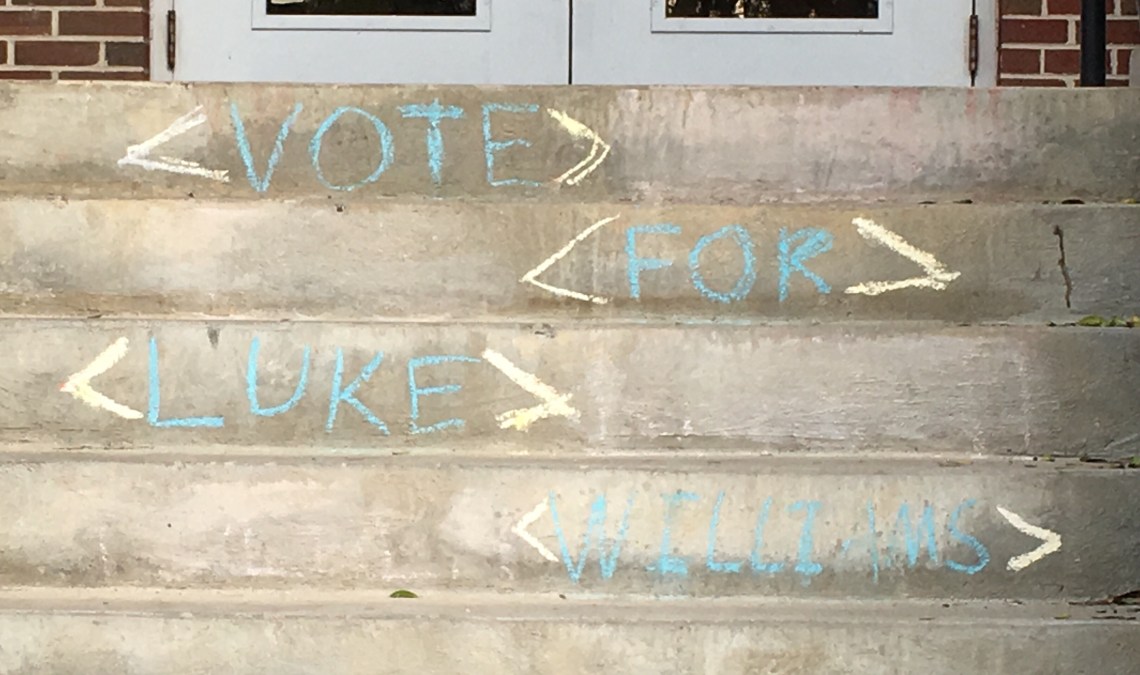 <VOTE>
<FOR>
<LUKE>
<WILLIAMS>